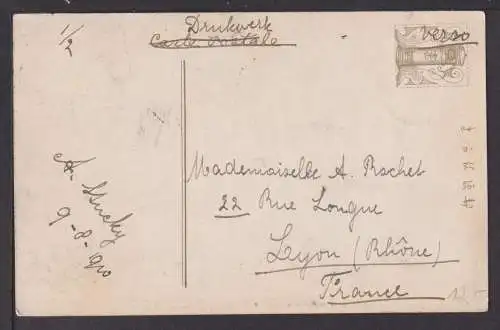 Drukwerk
Carte Postale
verso
1/2
Mademoiselle A. Rochet
22 Rue Longue
Lyon (Rhône)
France
A. Stucky
9-8-910